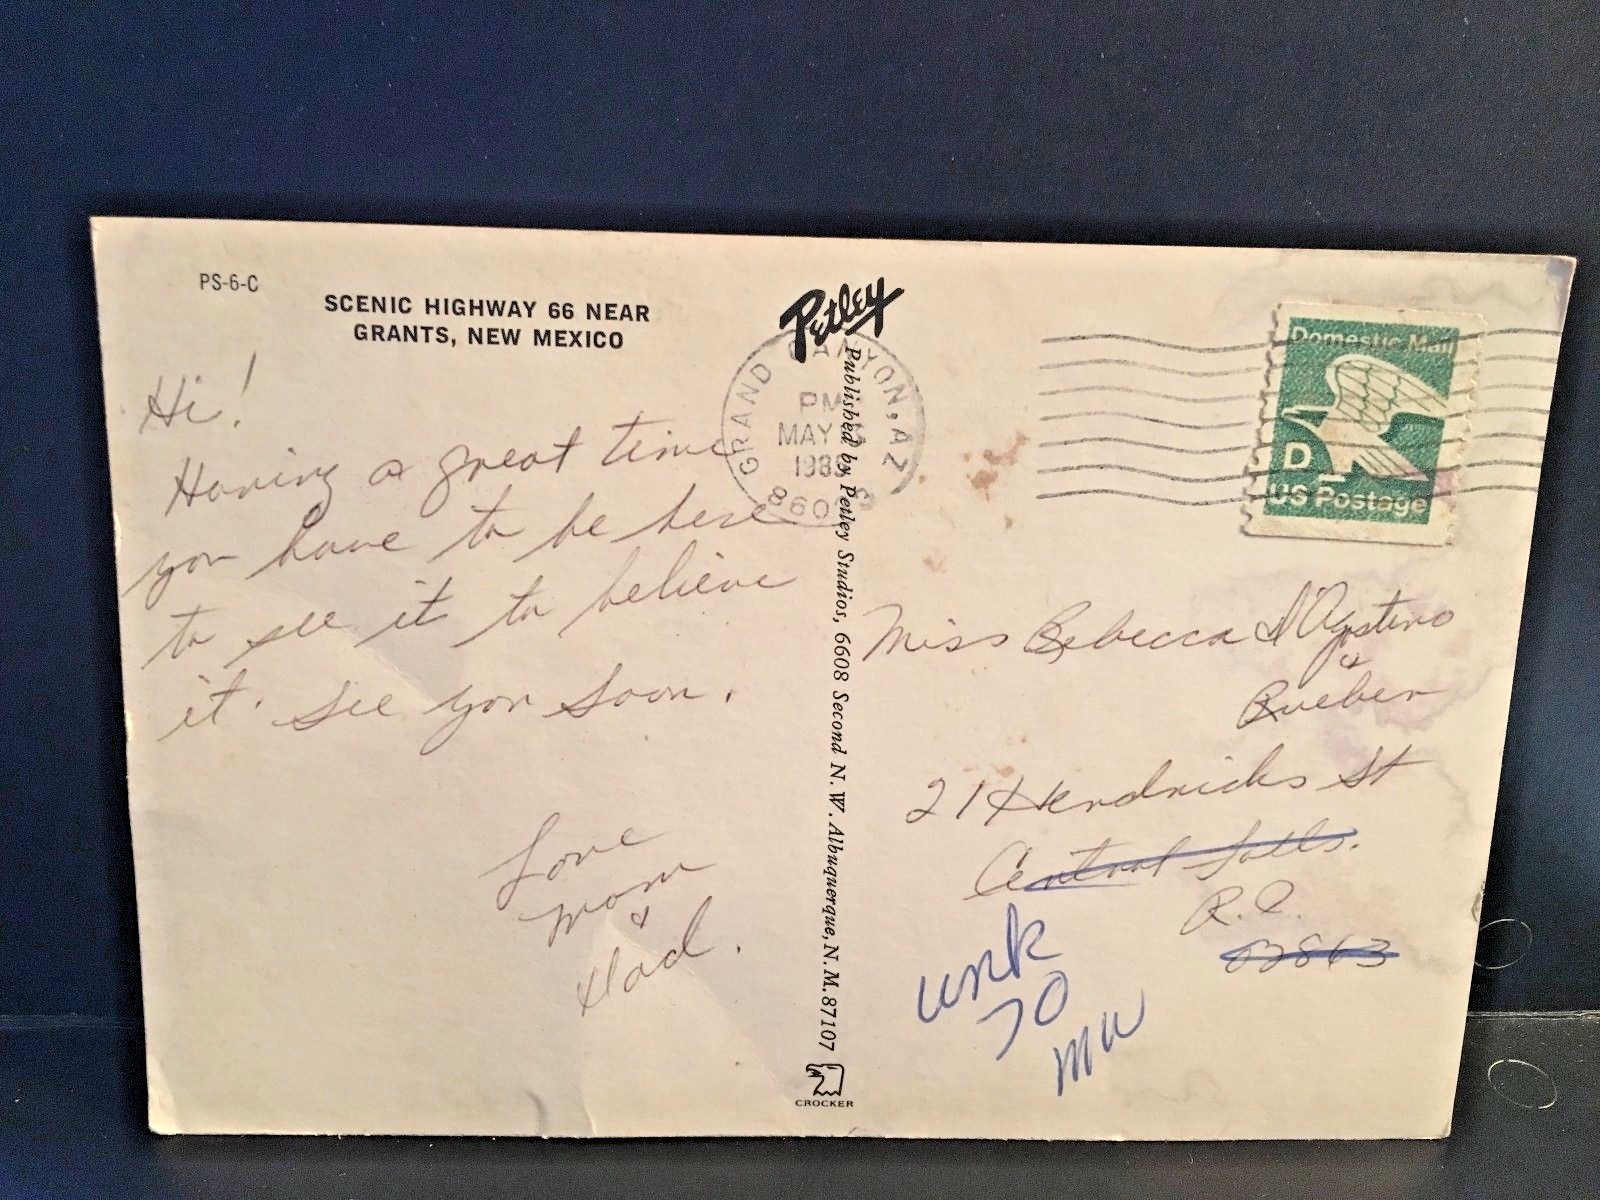 PS-6-C
SCENIC HIGHWAY 66 NEAR
GRANTS, NEW MEXICO
Hi!
Having a great time
you have to be here
to see it to believe
it. See you soon.
Love
Mom
&
Dad.
Petley
Published by Petley Studios, 6608 Second N. W. Albuquerque, N. M. 87107
CROCKER
GRAND CANYON, AZ
PM
MAY
198
860
Domestic Mail
D
US Postage
Miss Rebecca D'Agostino
&
Rueben
21 Hendricks St
Central Falls.
R.I.
02863
unk
70
MW